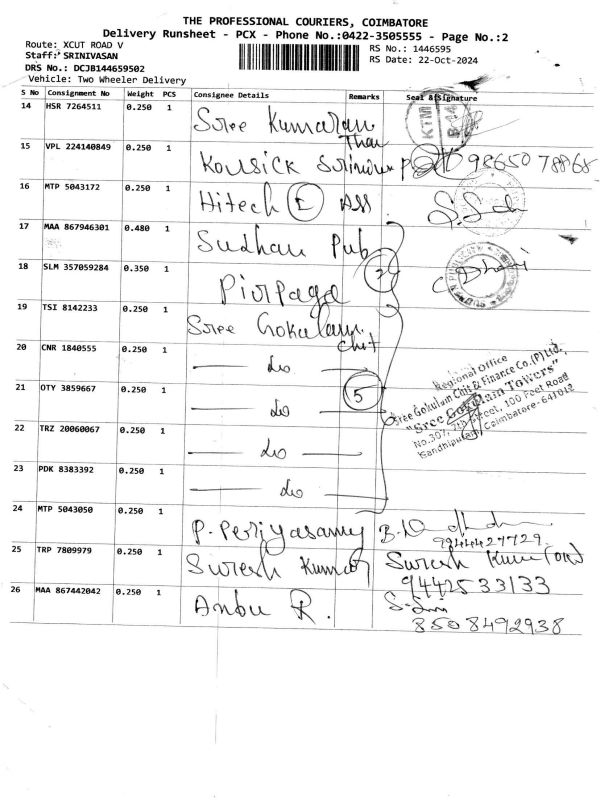 THE PROFESSIONAL COURIERS, COIMBATORE
Delivery Runsheet - PCX - Phone No.:0422-3505555 - Page No.:2
Route: XCUT ROAD V
RS No.: 1446595
Staff: SRINIVASAN
RS Date: 22-Oct-2024
DRS No.: DCJB144659502
Vehicle: Two Wheeler Delivery
S No Consignment No Weight PCS Consignee Details Remarks Seal & Signature
14 HSR 7264511 0.250 1 Sree Kumaran KTM
15 VPL 224140849 0.250 1 Kousick 98650 78868
16 MTP 5043172 0.250 1 Hitech
17 MAA 867946301 0.480 1 Sudhan Pub
18 SLM 357059284 0.350 1
19 TSI 8142233 0.250 1 Sree Gokulam Chit
20 CNR 1840555 0.250 1 do
21 OTY 3859667 0.250 1 do 5
Regional Office
Sree Gokulam Chit & Finance Co.(P) Ltd.
"Sree Gokulam Towers",
No.307, 7th Street, 100 Feet Road
Gandhipuram, Coimbatore-641012
22 TRZ 20060067 0.250 1 do
23 PDK 8383392 0.250 1 do
24 MTP 5043050 0.250 1 P. Periyasamy
9944427729
25 TRP 7809979 0.250 1 Suresh Kumar Suresh Kumar
9442533133
26 MAA 867442042 0.250 1 Anbu R.
8508492938